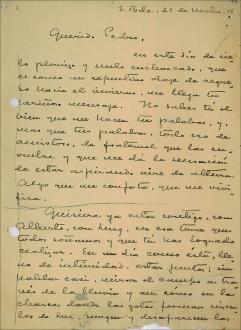 S. Bdo., 21 de Novbre. 
Querido Pedro,
en este día de cie-
lo plomizo y suelo encharcado, que
es como un repentino viaje de regre-
so hacia el invierno, me llega tu
cariñoso mensaje. No sabes tú el
bien que me hacen tus palabras, y
más que tus palabras, todo eso de
amistoso, de fraternal que las en-
vuelve y que me da la sensación
de estar aspirando aire de altura.
Algo que me conforta, que me vivi-
fica.
Quisiera ya estar contigo, con
Alberto, con
todos soñamos y que tú has logrado
realizar. En un día como este, lle-
no de intimidad, estar juntos, sin
hablar casi, mirar el campo a tra-
vés de la lluvia y ver como en los
charcos donde las gotas forman círcu-
los de luz, surgen y desaparecen los